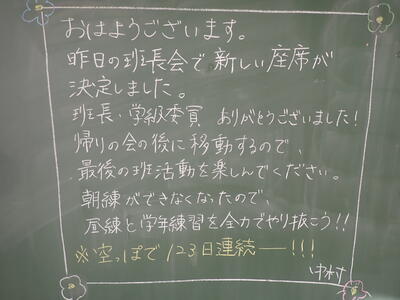 おはようございます。
昨日の班長会で新しい座席が
決定しました。
班長・学級委員 ありがとうございました！
帰りの会の後に移動するので、
最後の班活動を楽しんでください。
朝練ができなくなったので、
昼練と学年練習を全力でやり抜こう！！
※空っぽで123日連続ー！！！
中村